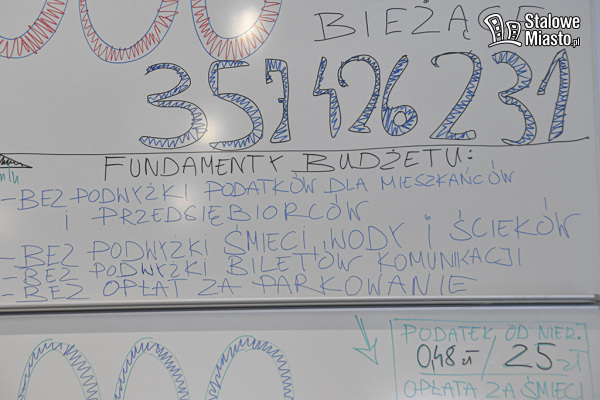 000
BIEŻĄCE
Stalowe
Miasto.pl
357 426 231
FUNDAMENTY BUDŻETU:
- BEZ PODWYŻKI PODATKÓW DLA MIESZKAŃCÓW
i PRZEDSIĘBIORCÓW
- BEZ PODWYŻKI ŚMIECI, WODY i ŚCIEKÓW
- BEZ PODWYŻKI BILETÓW KOMUNIKACJI
- BEZ OPŁAT ZA PARKOWANIE
000
PODATEK OD NIER.
0,48 zł / 25 zł
OPŁATA ZA ŚMIECI